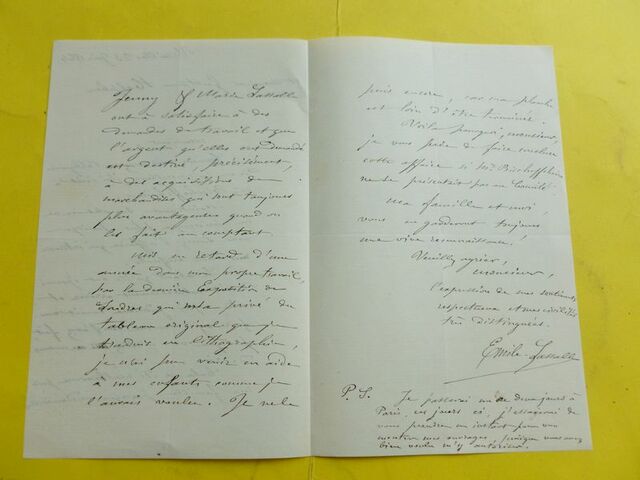 Jenny & Marie Lassalle
ont à satisfaire à des
demandes de travail et que
l'argent qu'elles ont demandé
est destiné, précisément,
à des acquisitions de
marchandises qui sont toujours
plus avantageuses quand on
les fait au comptant.
Mis en retard d'une
année dans mon propre travail,
par la dernière Exposition de
Londres qui m'a privé du
tableau original que je
traduis en lithographie,
je n'ai pu venir en aide
à mes enfants comme je
l'aurais voulu. Je ne le
puis encore, car ma planche
est loin d'être terminée.
Voilà pourquoi, monsieur,
je vous prie de faire
votre affaire si Mr Bischoffsheim
ne se présentait pas au Comité.
Ma famille et moi,
vous en garderont toujours
une vive reconnaissance.
Veuillez agréer,
monsieur,
l'expression de mes sentiments
respectueux et mes civilités
très distinguées.
Emile Lassalle
P. S. Je passerai un ou deux jours à
Paris, ces jours ci, j'essaierai de
vous prendre un instant pour vous
montrer mes ouvrages, puisque vous avez
bien voulu m'y autoriser.